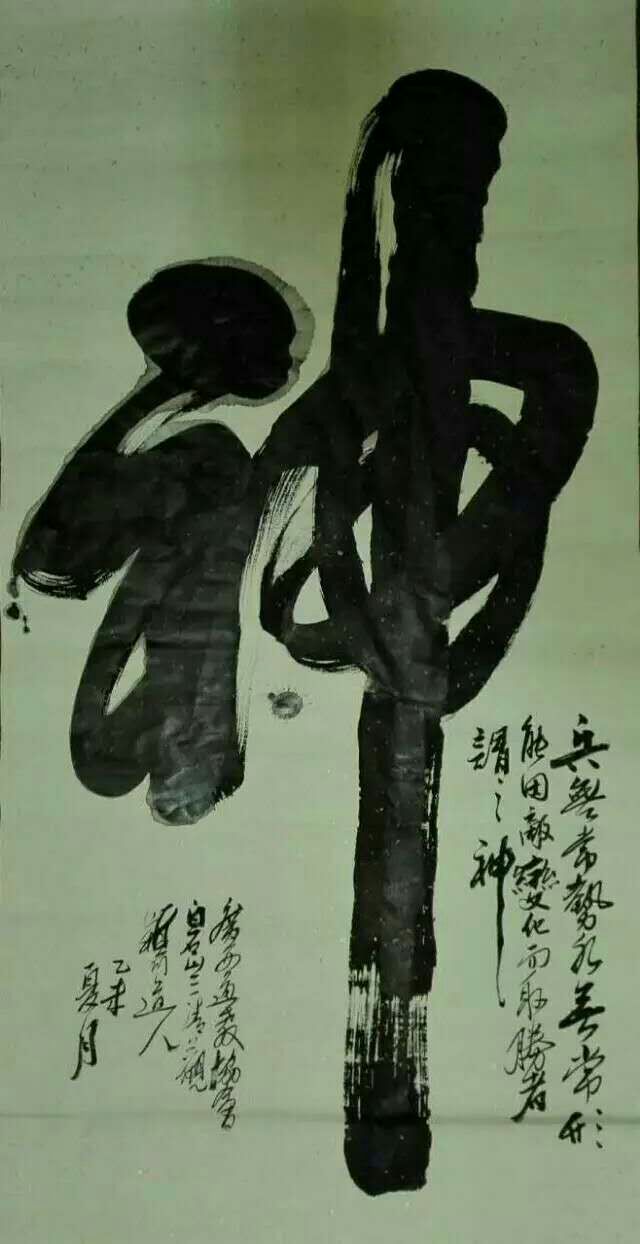 神
兵無常勢水無常形
能因敵變化而取勝者
謂之神
廣西道教協會
白石山三清觀
道人
乙未
夏月